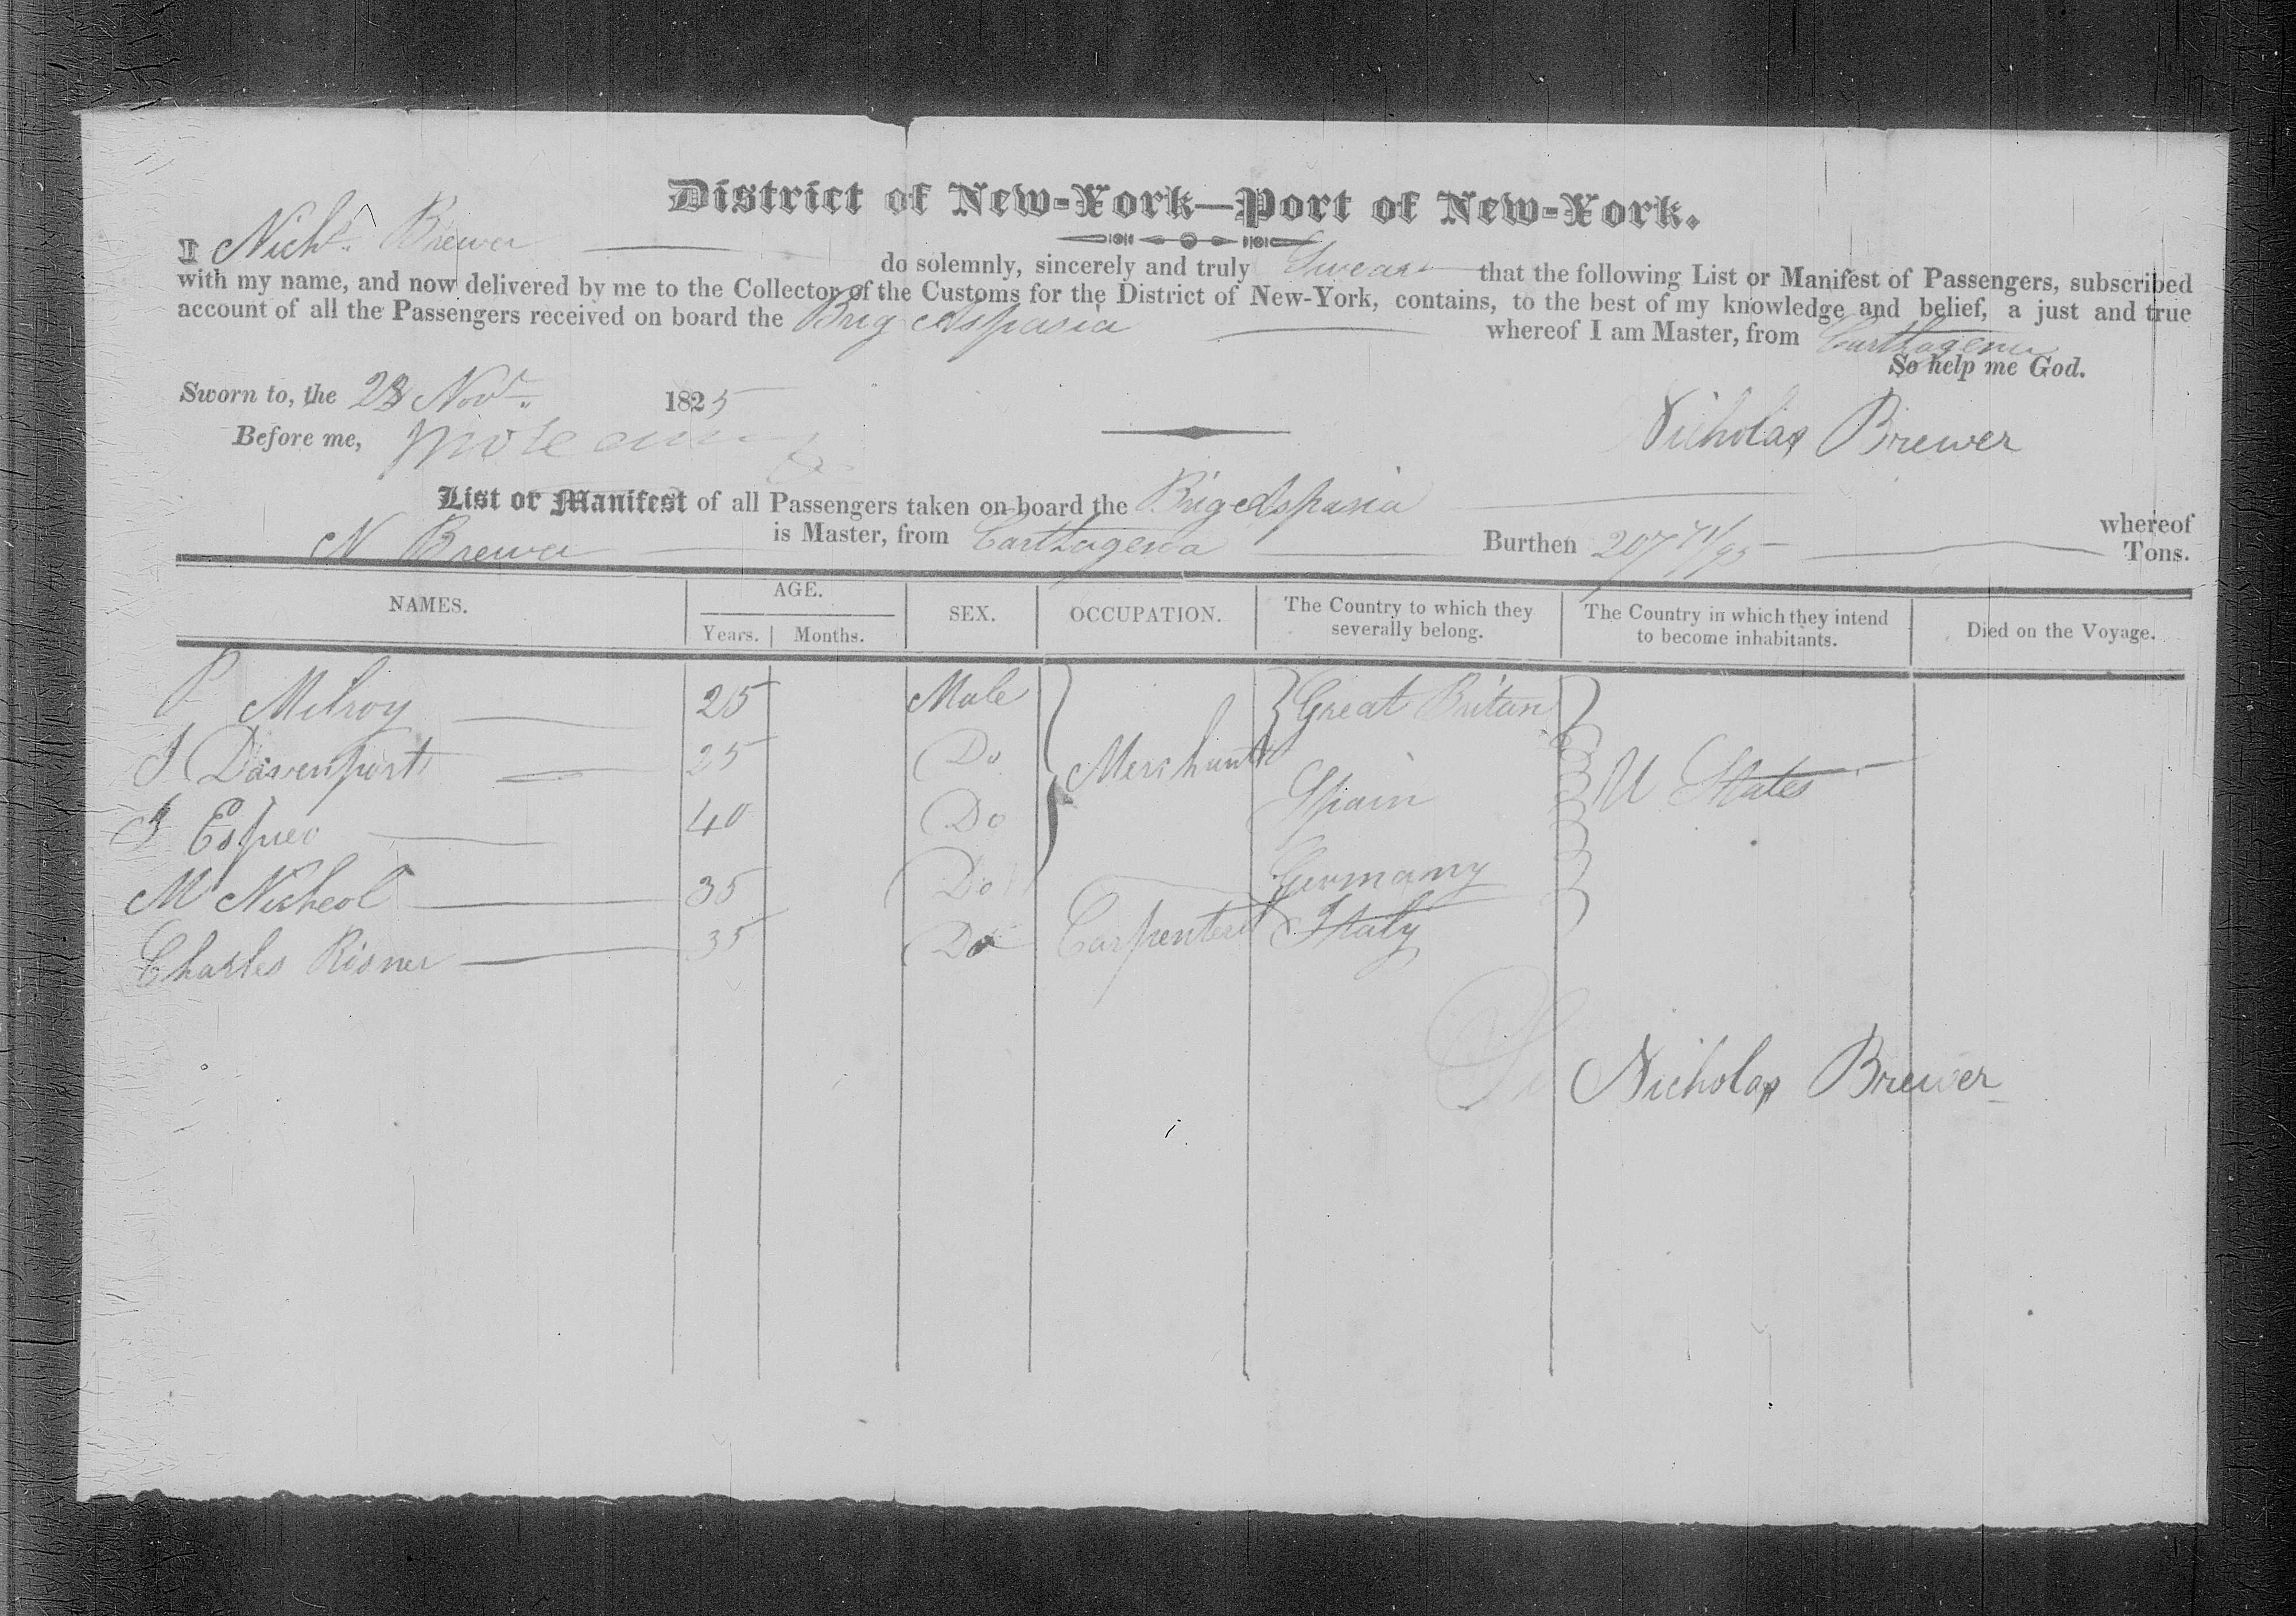 District of New-York—Port of New-York.
I Nichs. Brewer do solemnly, sincerely and truly Swear that the following List or Manifest of Passengers, subscribed
with my name, and now delivered by me to the Collector of the Customs for the District of New-York, contains, to the best of my knowledge and belief, a just and true
account of all the Passengers received on board the Brig Aspasia whereof I am Master, from Carthagena
So help me God.
Sworn to, the 28 Novr. 1825
Before me,
Nicholas Brewer
List or Manifest of all Passengers taken on board the Brig Aspasia whereof
N Brewer is Master, from Carthagena Burthen 207 71/95 Tons.
NAMES. AGE. SEX. OCCUPATION. The Country to which they severally belong. The Country in which they intend to become inhabitants. Died on the Voyage.
Years. Months.
P Milroy 25 Male Great Britan
J Davenport 25 Do Merchants U States
J Espueo 40 Do Spain
M Nicheol 35 Do Germany
Charles Risner 35 Do Carpenters Italy
Nicholas Brewer